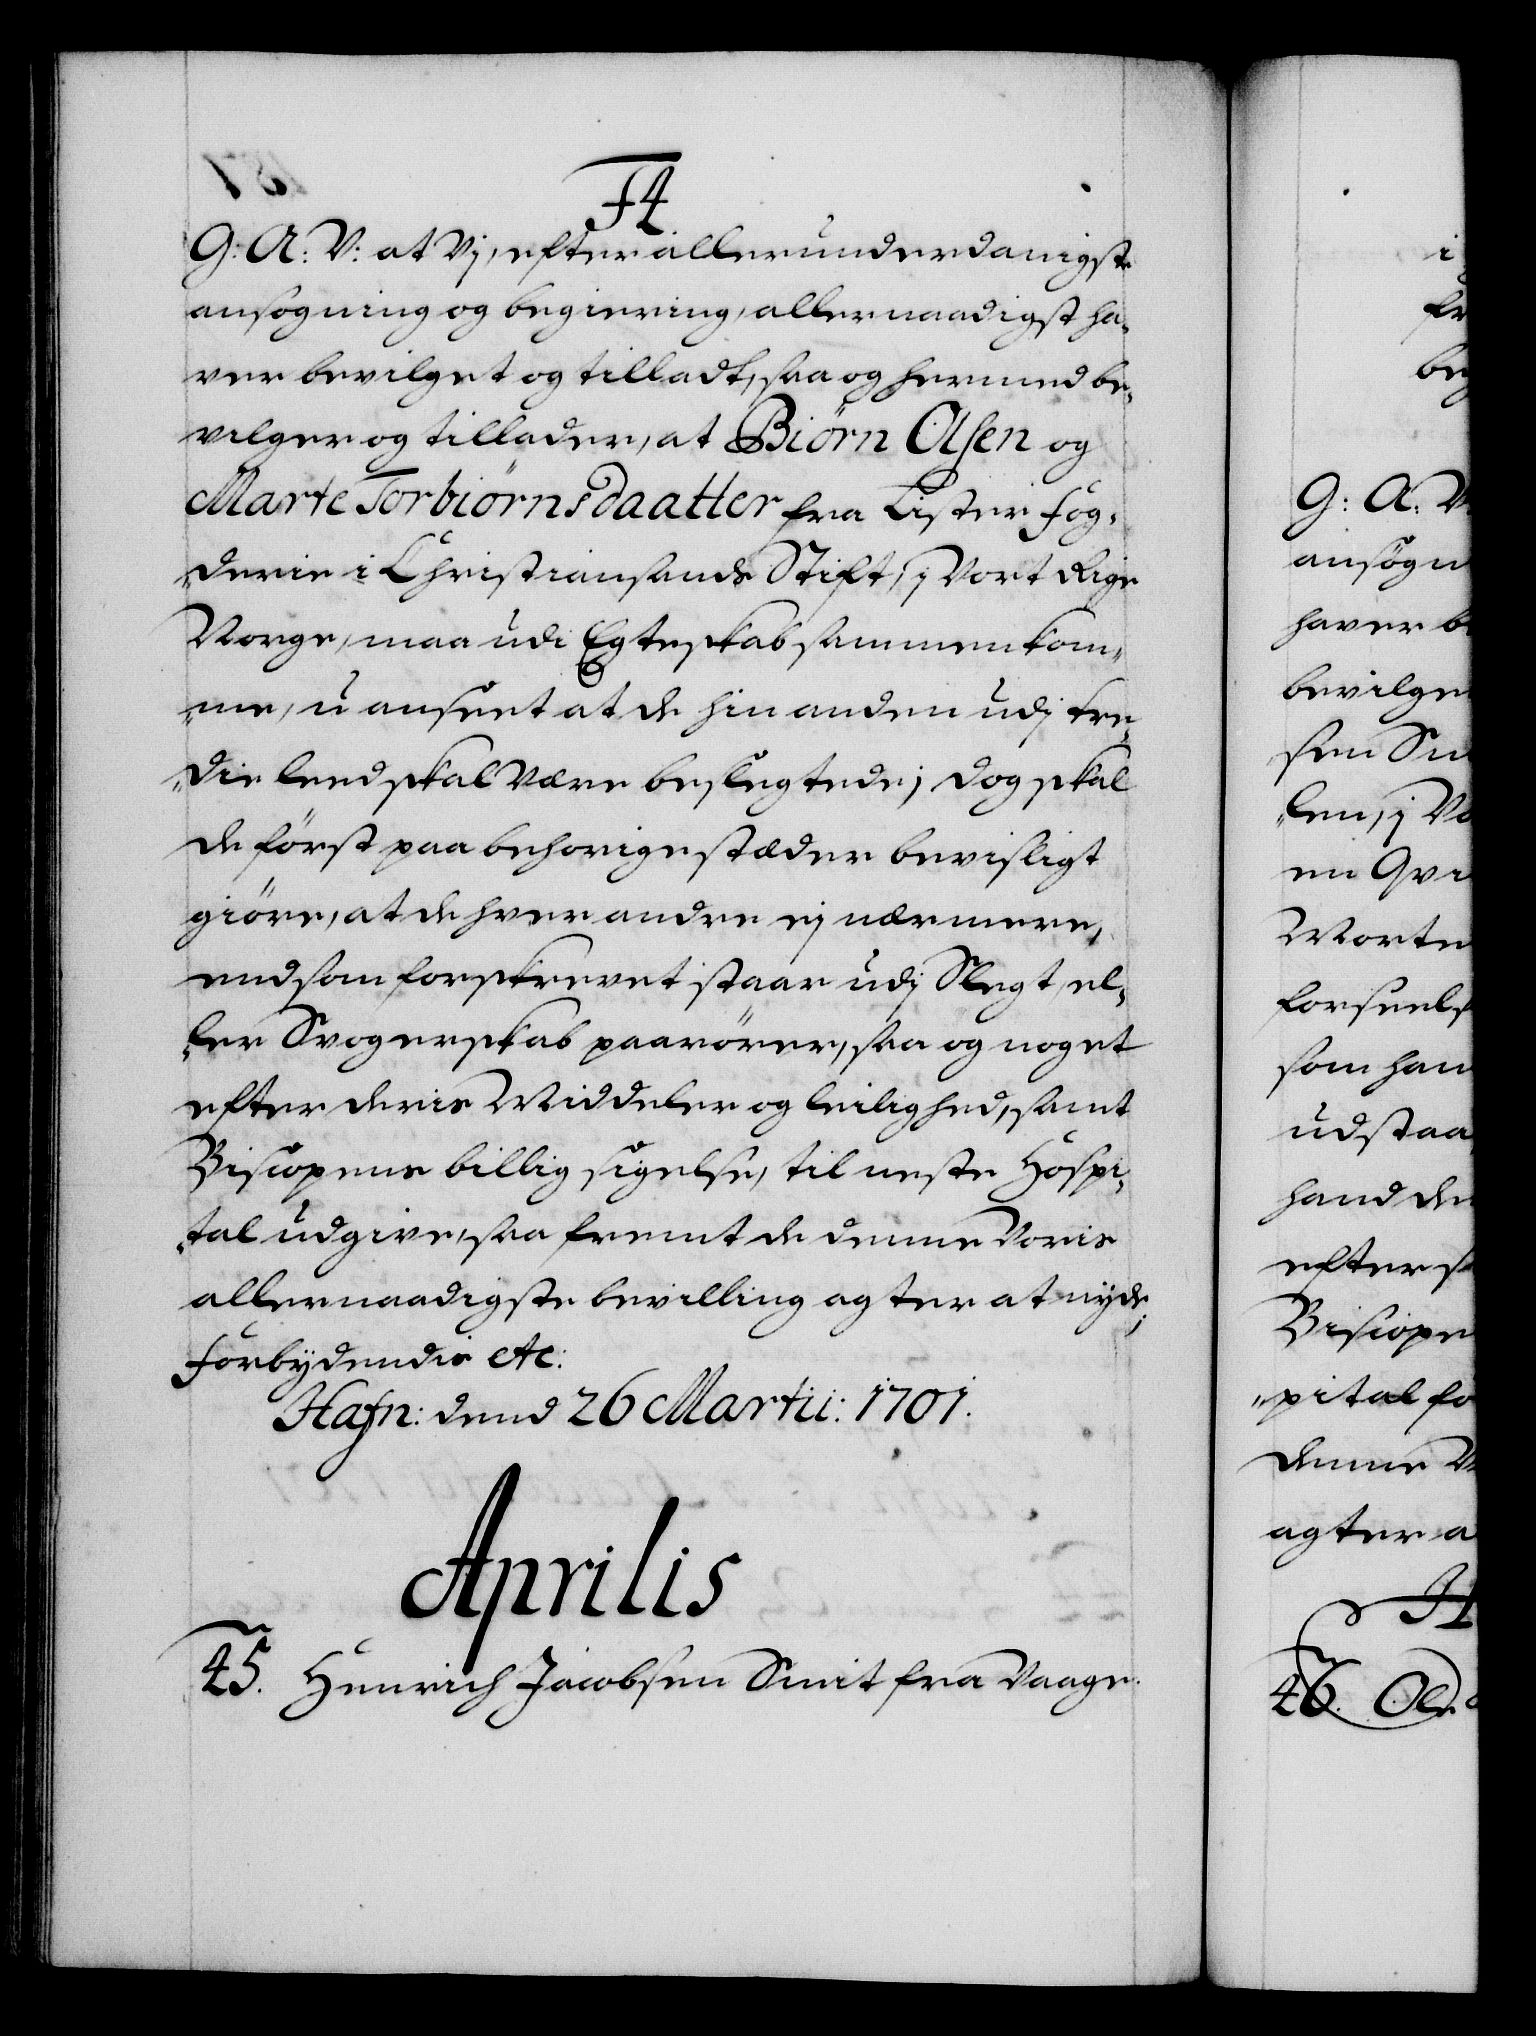 F4
G: A: V: at Vj, efter allerunderdanigste
ansøgning og begiering, allernaadigst ha-
ver bevilget og tilladt, saa og hermed be-
vilger og tillader, at Biörn Olsen og
Marte Torbiörnsdaatter fra Lister Fog-
derie i Christiansands Stift, j Vort Rige
Norge, maa udi Egteskab sammenkom-
me, u anseet at de hin anden udj tre-
die leed skal være beslegtede; dog skal
de först paa behorige stæder bevisligt
giöre, at de hver andre ej nærmere,
end som forskrevet staar udj Slegt, el-
ler Svogerskab paarörer, saa og noget
efter deris Middeler og leilighed, samt
Biscopens billig sigelse, til neste Hospi-
tal udgive, saa fremt de denne Voris
allernaadigste bevilling agter at nyde;
Forbydendis etc:
Hafn: dend 26 Martii: 1701.
Aprilis
45. Henrich Jacobsen Smit fra Vaage.
G: A: V:
ansögn
haver be
bevilge
len, j Vo
Morte
forseels
som han
udstaa
hand de
efter s
Biscope
pital fo
denne V
agter a
46. Ole